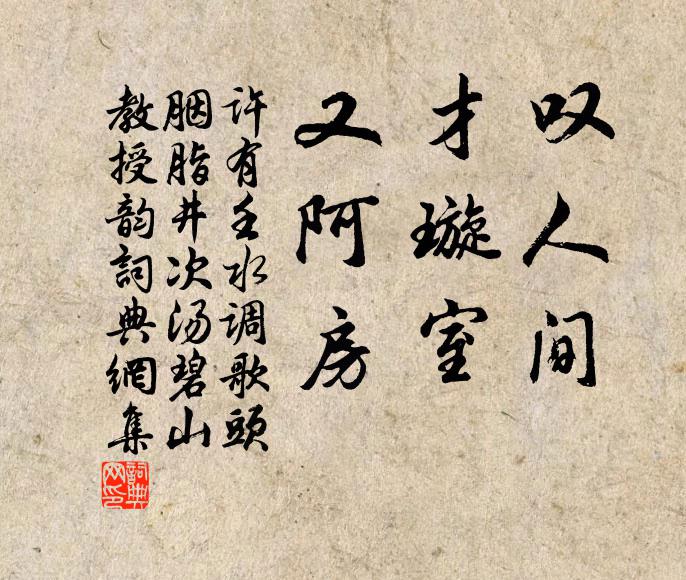 叹人间
才璇室
又阿房
许有壬水调歌頭
胭脂井次汤碧山
教授韵詞典網集
詞典网印